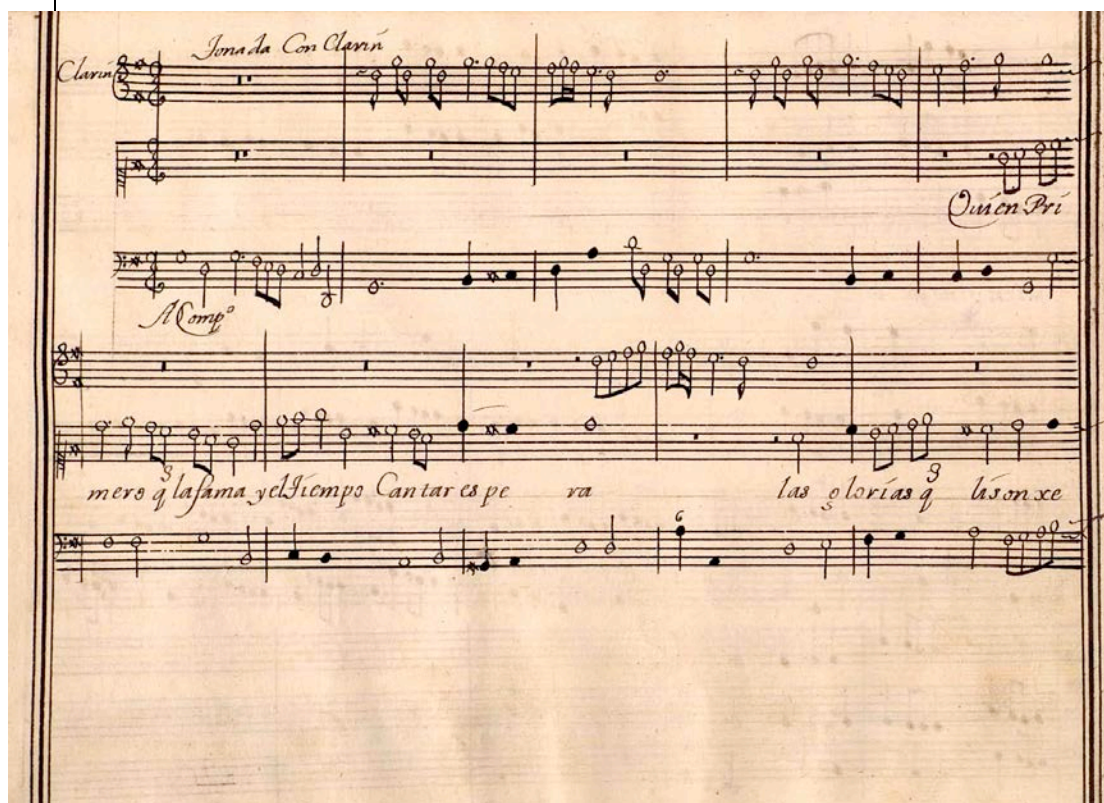 Tonada Con Clarín
Clarín
Quien Pri
AComp.º
mero q la fama y el Tiempo Cantar es pe ra las glorías q lisonxe
6